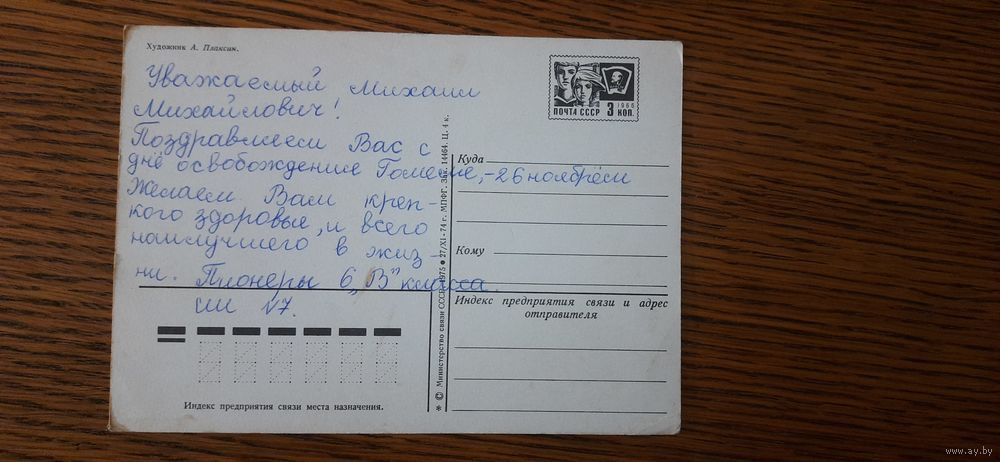 Художник А. Плаксин.
Уважаемый Михаил
Михайлович!
Поздравляем Вас с
днё освобождение Гомеле, - 26 ноябрём
Желаем Вам креп-
кого здоровье, и всего
наилучшего в жиз-
ни. Пионеры 6 „В” класса.
сш N7.
Индекс предприятия связи места назначения.
* © Министерство связи СССР. 1975 ● 27/XI-74 г. МПФГ. Зак. 14464. Ц. 4 к.
ПОЧТА СССР 3 КОП.
1966
Куда
Кому
Индекс предприятия связи и адрес
отправителя
www.ay.by